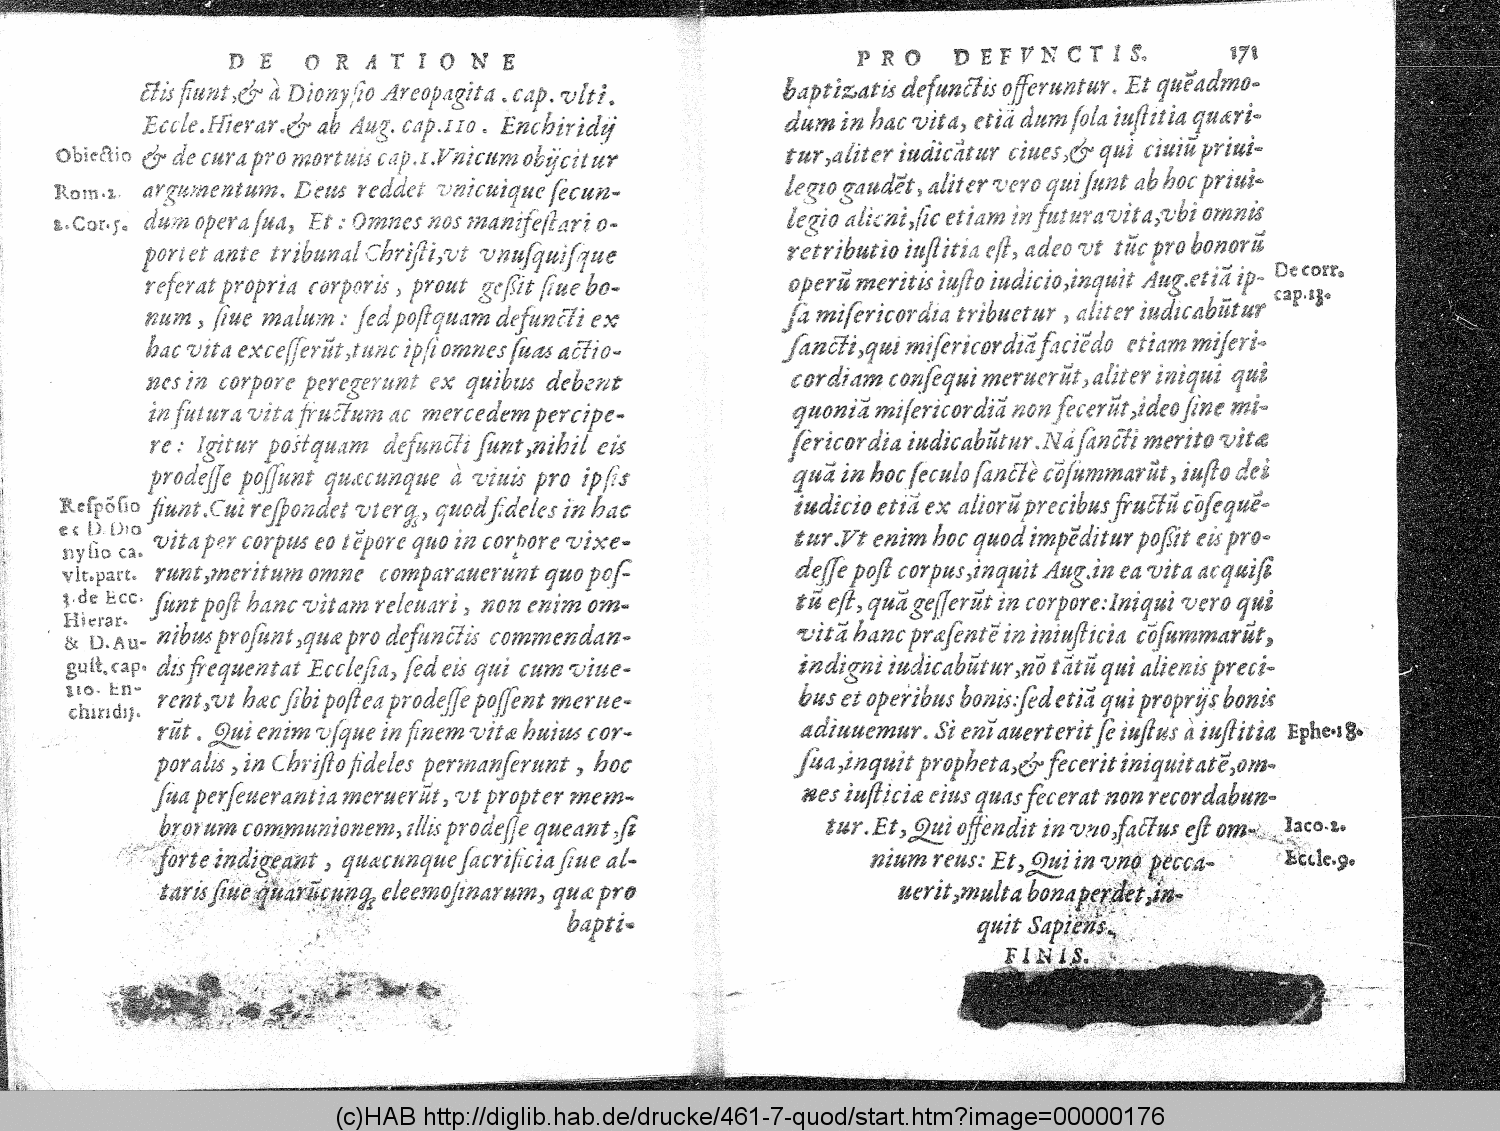 DE ORATIONE
ctis fiunt, & à Dionysio Areopagita. cap. vlti.
Eccle. Hierar. & ab Aug. cap. 110. Enchiridij
Obiectio
& de cura pro mortuis cap. 1. Vnicum obijcitur
Rom. 2.
argumentum. Deus reddet vnicuique secun-
2. Cor. 5.
dum opera sua, Et: Omnes nos manifestari o-
portet ante tribunal Christi, vt vnusquisque
referat propria corporis, prout gessit siue bo-
num, siue malum: sed postquam defuncti ex
hac vita excesserūt, tunc ipsi omnes suas actio-
nes in corpore peregerunt ex quibus debent
in futura vita fructum ac mercedem percipe-
re: Igitur postquam defuncti sunt, nihil eis
prodesse possunt quæcunque à viuis pro ipsis
fiunt. Cui respondet vterq;, quod fideles in hac
vita per corpus eo tēpore quo in corpore vixe-
runt, meritum omne comparauerunt quo pos-
sunt post hanc vitam releuari, non enim om-
nibus prosunt, quæ pro defunctis commendan-
dis frequentat Ecclesia, sed eis qui cum viue-
rent, vt hæc sibi postea prodesse possent merue-
rūt. Qui enim vsque in finem vitæ huius cor-
poralis, in Christo fideles permanserunt, hoc
sua perseuerantia meruerūt, vt propter mem-
brorum communionem, illis prodesse queant, si
forte indigeant, quæcunque sacrificia siue al-
taris siue quarūcunq; eleemosinarum, quæ pro
bapti-
Respōsio
ex D. Dio
nysio ca.
vlt. part.
3. de Ecc.
Hierar.
& D. Au-
gust. cap.
110. En-
chiridij.
PRO DEFVNCTIS. 171
baptizatis defunctis offeruntur. Et quēadmo-
dum in hac vita, etiā dum sola iustitia quæri-
tur, aliter iudicātur ciues, & qui ciuiū priui-
legio gaudēt, aliter vero qui sunt ab hoc priui-
legio alieni, sic etiam in futura vita, vbi omnis
retributio iustitia est, adeo vt tūc pro bonorū
operū meritis iusto iudicio, inquit Aug. etiā ip-
De corr.
cap. 13.
sa misericordia tribuetur, aliter iudicabūtur
sancti, qui misericordiā faciēdo etiam miseri-
cordiam consequi meruerūt, aliter iniqui qui
quoniā misericordiā non fecerūt, ideo sine mi-
sericordia iudicabūtur. Nā sancti merito vitæ
quā in hoc seculo sanctè cōsummarūt, iusto dei
iudicio etiā ex aliorū precibus fructū cōsequē-
tur. Vt enim hoc quod impēditur possit eis pro-
desse post corpus, inquit Aug. in ea vita acquisi
tū est, quā gesserūt in corpore: Iniqui vero qui
vitā hanc præsentē in iniusticia cōsummarūt,
indigni iudicabūtur, nō tātū qui alienis preci-
bus et operibus bonis: sed etiā qui proprijs bonis
adiuuemur. Si enī auerterit se iustus à iustitia
Ephe. 18.
sua, inquit propheta, & fecerit iniquitatē, om-
nes iusticiæ eius quas fecerat non recordabun-
tur. Et, Qui offendit in vno, factus est om-
Iaco. 2.
nium reus: Et, Qui in vno pecca-
Eccle. 9.
uerit, multa bona perdet, in-
quit Sapiens.
FINIS.
(c)HAB http://diglib.hab.de/drucke/461-7-quod/start.htm?image=00000176